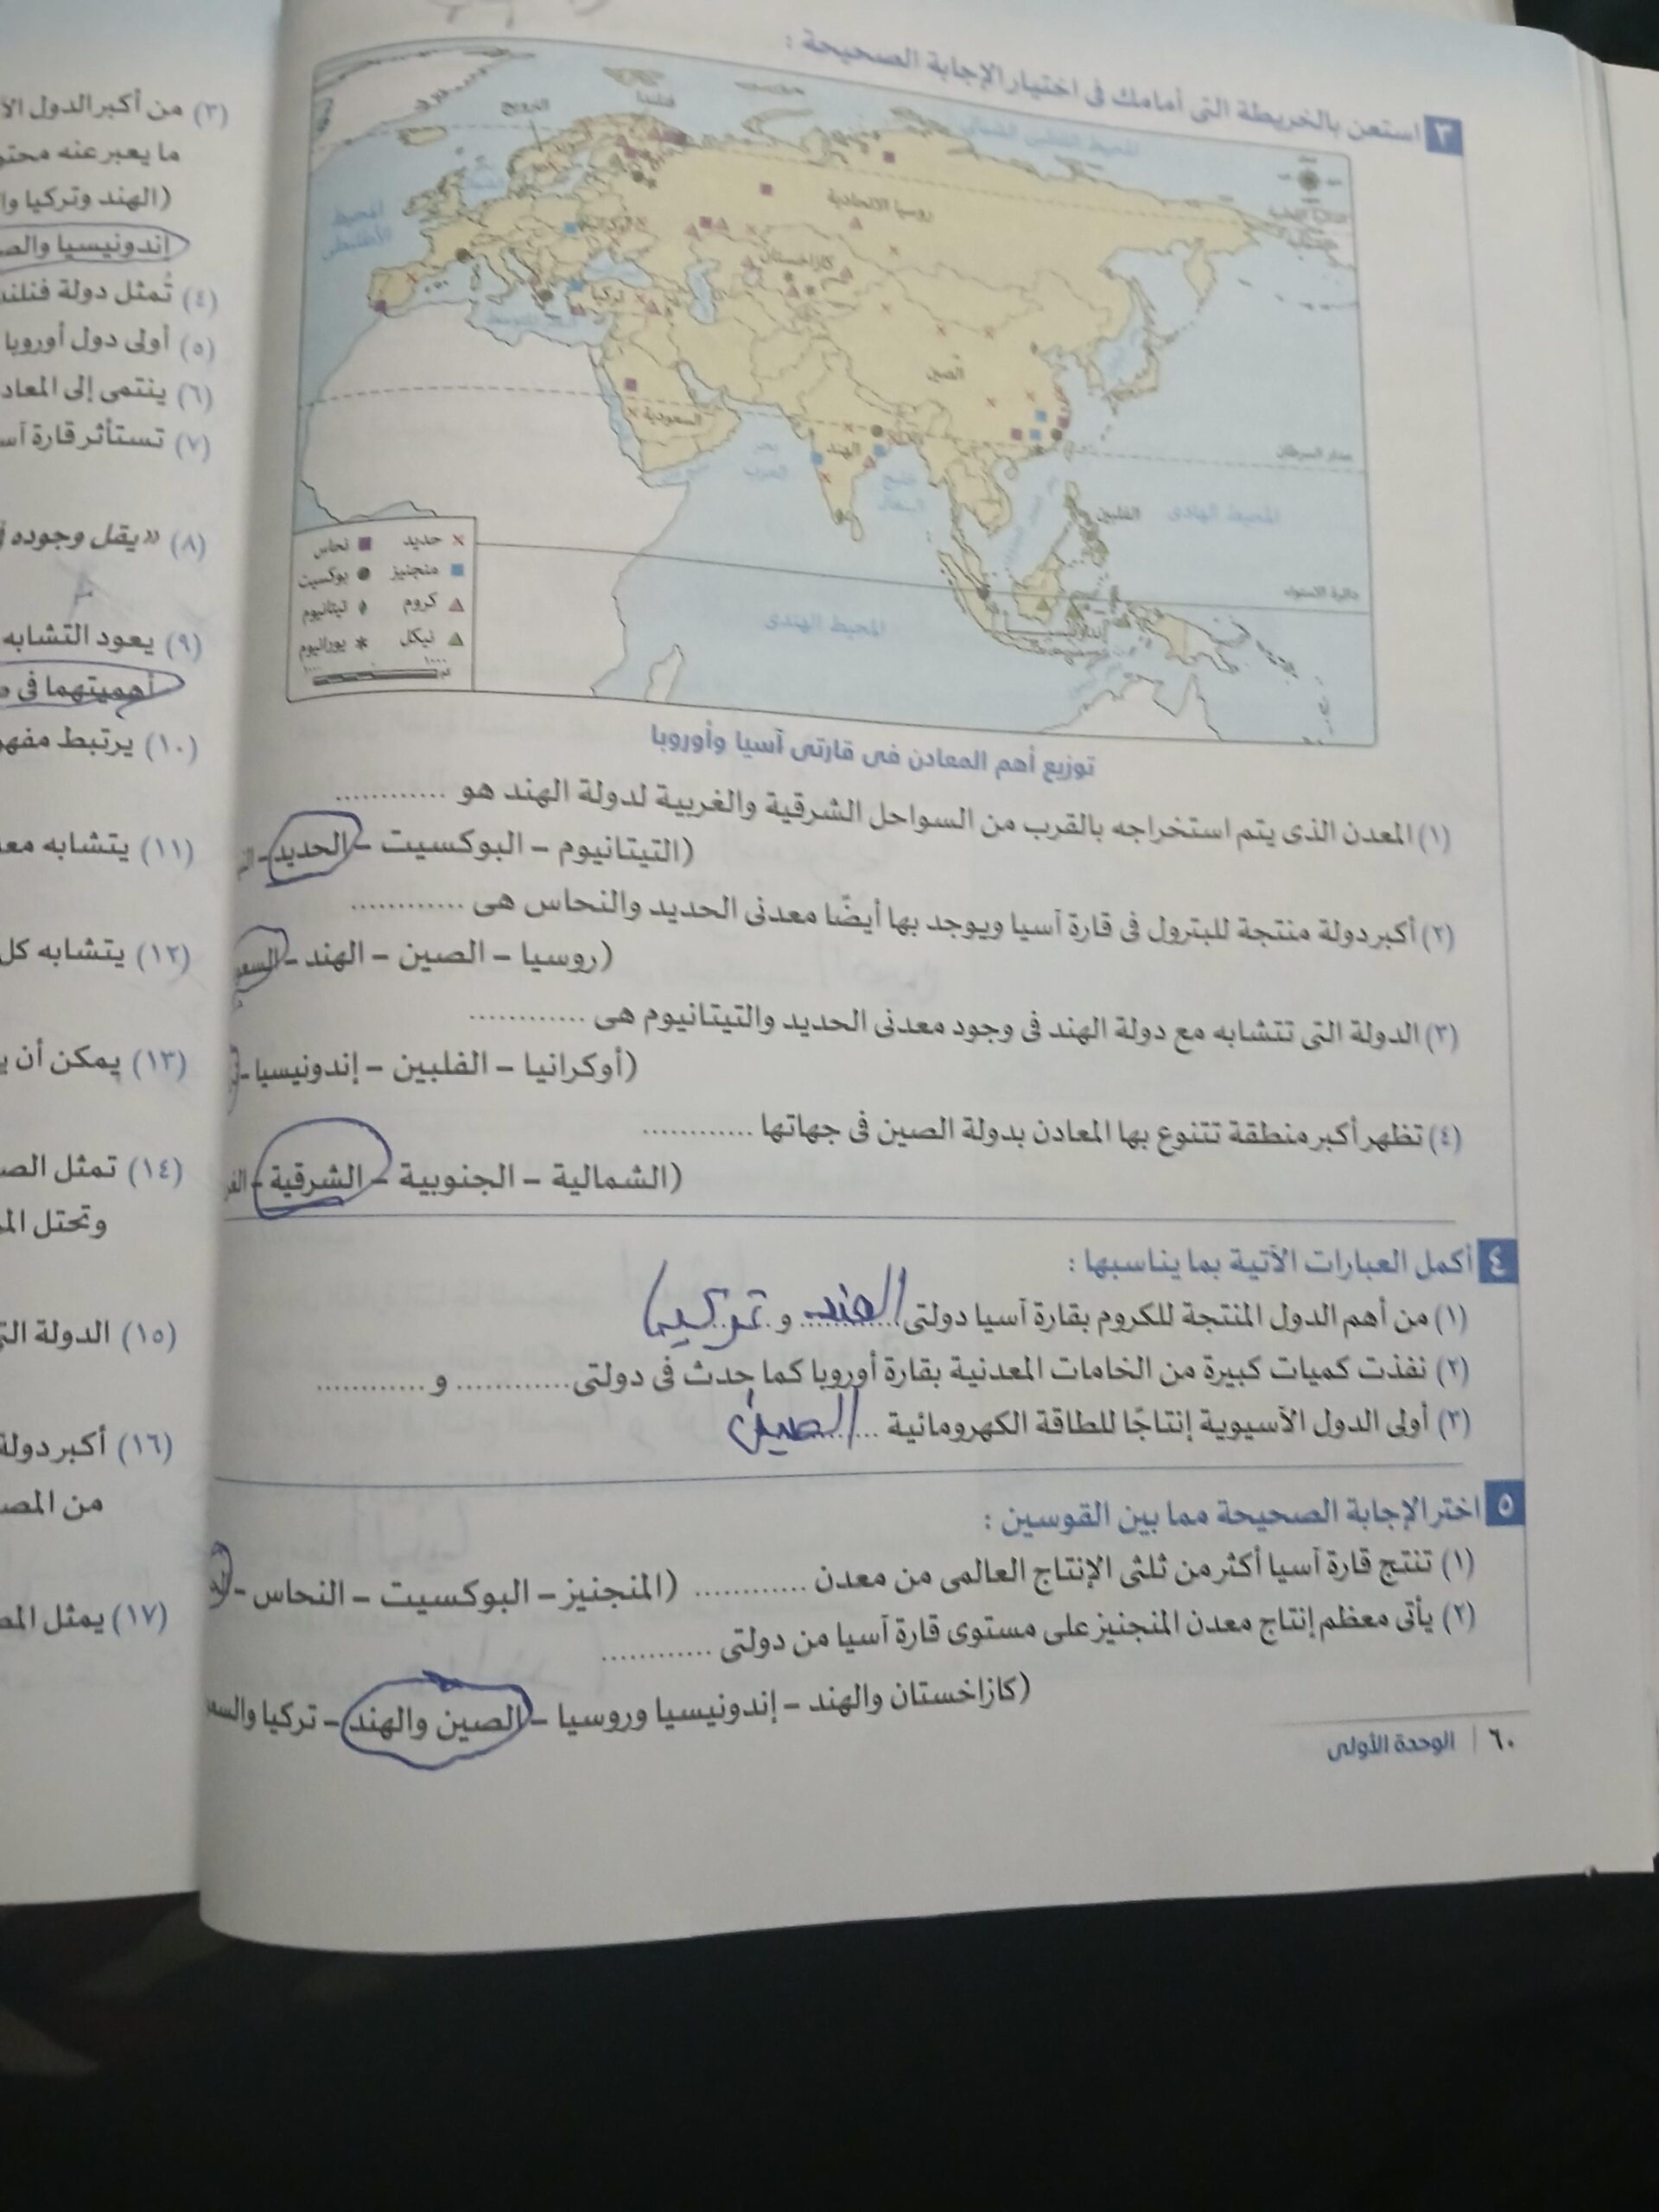 ٣ استعن بالخريطة التى أمامك فى اختيار الإجابة الصحيحة :
النرويج
فنلندا
المحيط القطبى الشمالى
روسيا الاتحادية
المحيط الأطلنطى
أوكرانيا
كازاخستان
تركيا
البحر المتوسط
الصين
السعودية
الهند
بحر العرب
خليج البنغال
مدار السرطان
الفلبين
المحيط الهادى
دائرة الاستواء
المحيط الهندى
إندونيسيا
حديد
نحاس
منجنيز
بوكسيت
كروم
تيتانيوم
نيكل
يورانيوم
توزيع أهم المعادن فى قارتى آسيا وأوروبا
(١) المعدن الذى يتم استخراجه بالقرب من السواحل الشرقية والغربية لدولة الهند هو ............
(التيتانيوم – البوكسيت – الحديد –
(٢) أكبر دولة منتجة للبترول فى قارة آسيا ويوجد بها أيضًا معدنى الحديد والنحاس هى ............
(روسيا – الصين – الهند – السعو
(٣) الدولة التى تتشابه مع دولة الهند فى وجود معدنى الحديد والتيتانيوم هى ............
(أوكرانيا – الفلبين – إندونيسيا –
(٤) تظهر أكبر منطقة تتنوع بها المعادن بدولة الصين فى جهاتها ............
(الشمالية – الجنوبية – الشرقية – الغر
٤ أكمل العبارات الآتية بما يناسبها :
(١) من أهم الدول المنتجة للكروم بقارة آسيا دولتى الهند و تركيا
(٢) نفذت كميات كبيرة من الخامات المعدنية بقارة أوروبا كما حدث فى دولتى ............ و ............
(٣) أولى الدول الآسيوية إنتاجًا للطاقة الكهرومائية الصين
٥ اختر الإجابة الصحيحة مما بين القوسين :
(١) تنتج قارة آسيا أكثر من ثلثى الإنتاج العالمى من معدن ............ (المنجنيز – البوكسيت – النحاس –
(٢) يأتى معظم إنتاج معدن المنجنيز على مستوى قارة آسيا من دولتى ............
(كازاخستان والهند – إندونيسيا وروسيا – الصين والهند – تركيا والسعو
٦٠ | الوحدة الأولى
(٣) من أكبر الدول الآ
ما يعبر عنه محتو
(الهند وتركيا وا
إندونيسيا والص
(٤) تُمثل دولة فنلند
(٥) أولى دول أوروبا
(٦) ينتمى إلى المعاد
(٧) تستأثر قارة آس
(٨) «يقل وجوده ف
(٩) يعود التشابه
أهميتهما فى ص
(١٠) يرتبط مفهو
(١١) يتشابه معد
(١٢) يتشابه كل
(١٣) يمكن أن ي
(١٤) تمثل الص
وتحتل المر
(١٥) الدولة الت
(١٦) أكبر دولة
من المص
(١٧) يمثل المص